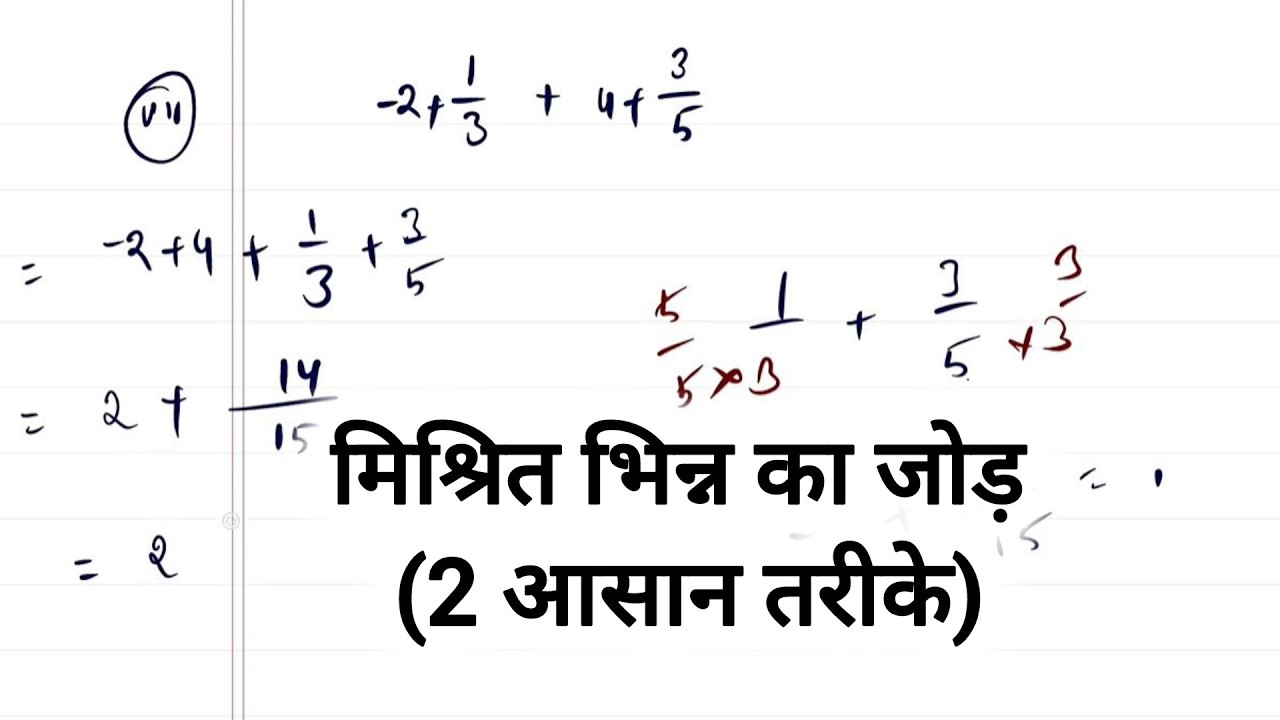 (vii) -2+1/3 + 4+3/5
= -2+4 + 1/3 + 3/5
5/5×3 1 + 3/5 ×3 3
= 2 + 14/15
मिश्रित भिन्न का जोड़
= .
15
= 2
(2 आसान तरीके)